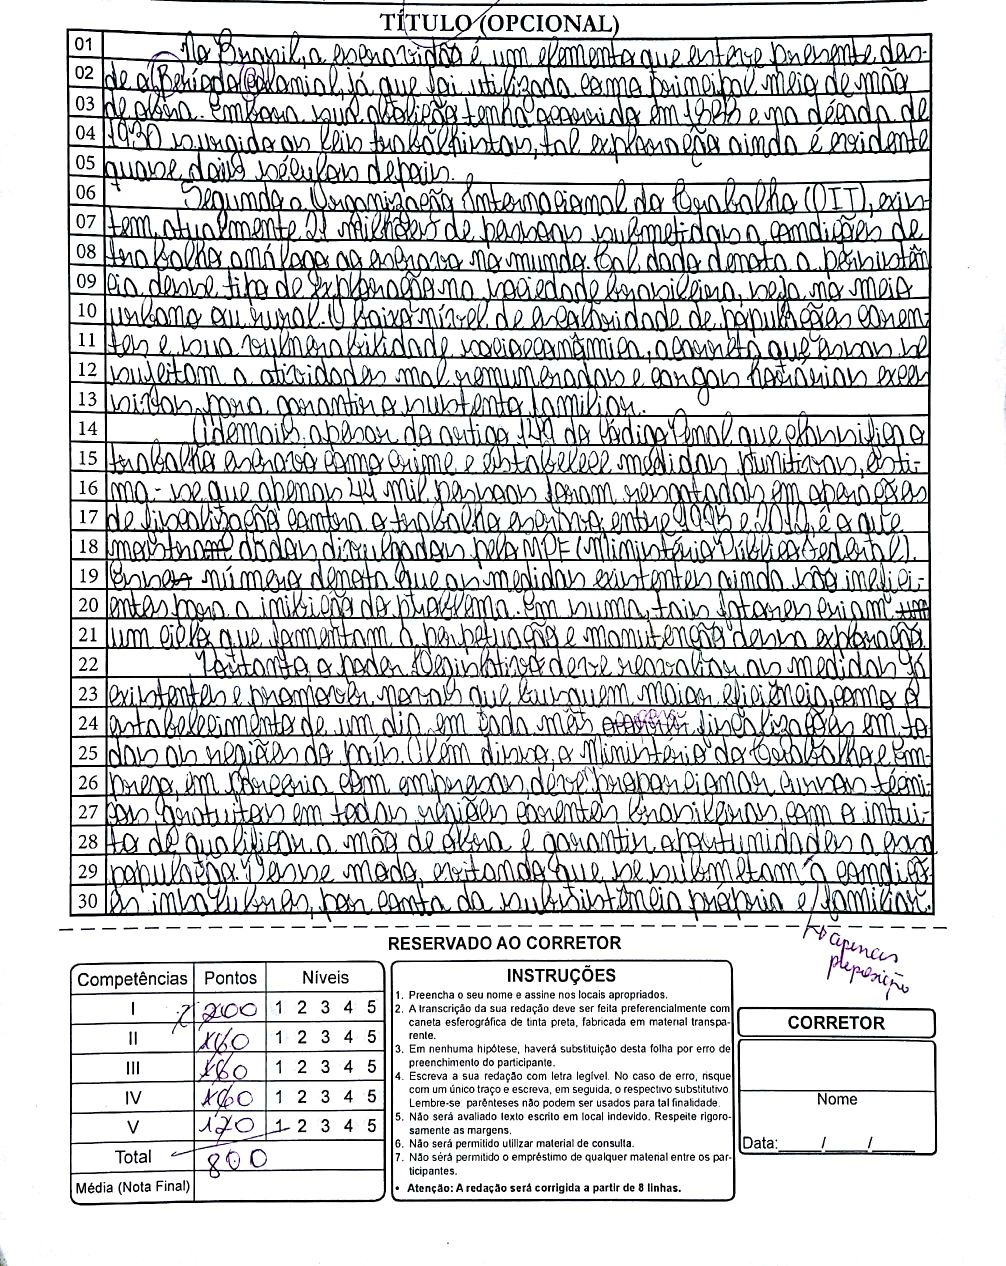 TÍTULO (OPCIONAL)
01 No Brasil, a escravidão é um elemento que esteve presente des-
02 de o Período Colonial, já que foi utilizada como principal meio de mão
03 de obra. Embora sua abolição tenha ocorrido em 1888 e na década de
04 1930 surgido as leis trabalhistas, tal exploração ainda é evidente
05 quase dois séculos depois.
06 Segundo a Organização Internacional do Trabalho (OIT), exis-
07 tem, atualmente 21 milhões de pessoas submetidas a condições de
08 trabalho análogo ao escravo no mundo. Tal dado denota a persistên
09 cia desse tipo de exploração na sociedade brasileira, seja no meio
10 urbano ou rural. O baixo nível de escolaridade de populações caren-
11 tes e sua vulnerabilidade socioeconômica, acarreta que essas se
12 sujeitam a atividades mal remuneradas e cargas horárias exces
13 sivas para garantir o sustento familiar.
14 Ademais, apesar do artigo 149 do Código Penal que classifica o
15 trabalho escravo como crime e estabelece medidas punitivas, esti-
16 ma-se que apenas 44 mil pessoas foram resgatadas em operações
17 de fiscalização contra o trabalho escravo, entre 1995 e 2012, é o que
18 mostram dados divulgados pelo MPF (Ministério Público Federal).
19 Esse número denota que as medidas existentes ainda são inefici-
20 entes para a inibição do problema. Em suma, tais fatores criam
21 um ciclo que fomentam a perpetuação e manutenção dessa exploração.
22 Portanto o poder Legislativo deve reavaliar as medidas já
23 existentes e promover novas que busquem maior eficiência, como o
24 estabelecimento de um dia em cada mês fiscalizações em to
25 das as regiões do país. Além disso, o Ministério do Trabalho e Em-
26 prego, em parceria com empresas, deve proporcionar cursos técni-
27 cos gratuitos em todas regiões carentes brasileiras, com o intui-
28 to de qualificar a mão de obra e garantir oportunidades a essa
29 população. Desse modo, evitando que se submetam à condiçõ
30 es insalubres, por conta da subsistência própria e familiar.
apenas
preposição
RESERVADO AO CORRETOR
Competências Pontos Níveis
I 200 1 2 3 4 5
II 160 1 2 3 4 5
III 160 1 2 3 4 5
IV 160 1 2 3 4 5
V 120 1 2 3 4 5
Total 800
Média (Nota Final)
INSTRUÇÕES
1. Preencha o seu nome e assine nos locais apropriados.
2. A transcrição da sua redação deve ser feita preferencialmente com
caneta esferográfica de tinta preta, fabricada em material transpa-
rente.
3. Em nenhuma hipótese, haverá substituição desta folha por erro de
preenchimento do participante.
4. Escreva a sua redação com letra legível. No caso de erro, risque
com um único traço e escreva, em seguida, o respectivo substitutivo.
Lembre-se parênteses não podem ser usados para tal finalidade.
5. Não será avaliado texto escrito em local indevido. Respeite rigoro-
samente as margens.
6. Não será permitido utilizar material de consulta.
7. Não será permitido o empréstimo de qualquer material entre os par-
ticipantes.
• Atenção: A redação será corrigida a partir de 8 linhas.
CORRETOR
Nome
Data: ____/____/____